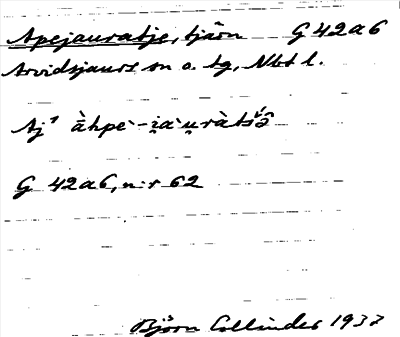 Apejauratje, tjärn G 42a6
Arvidsjaurs sn o. tg, Nbt l.
G 42a6, nr 62
Björn Collinder 1937